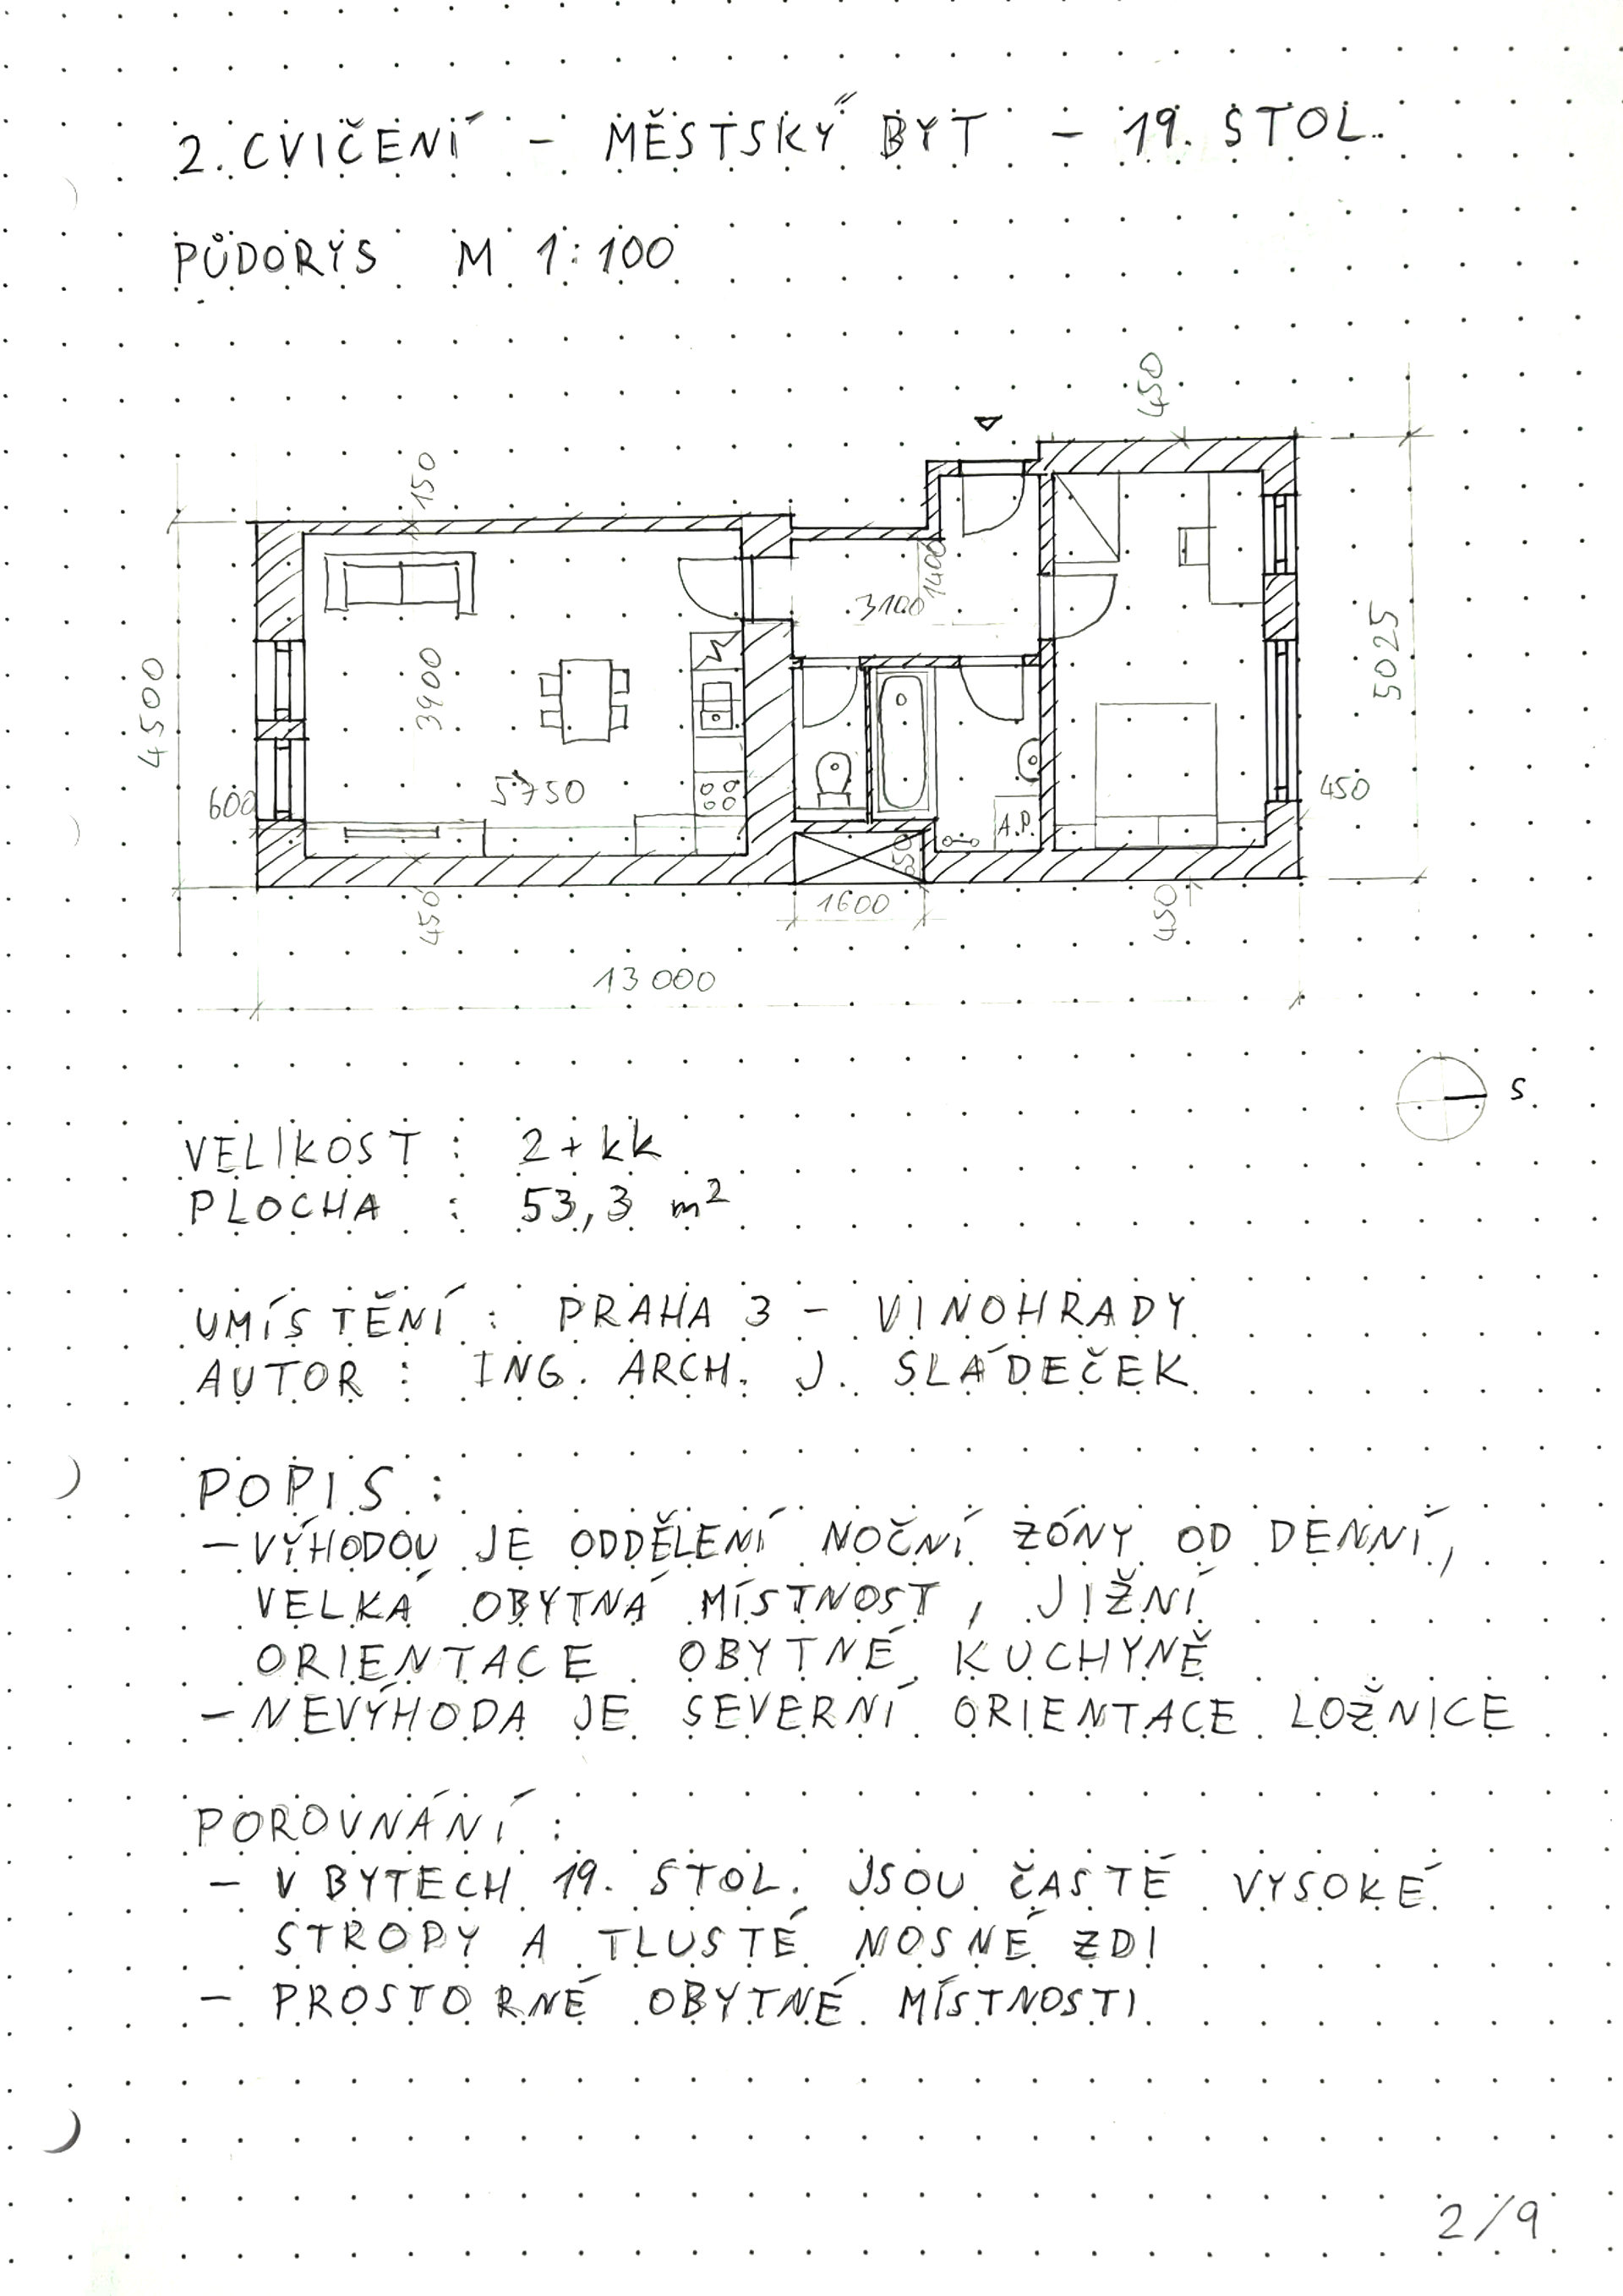 2. CVIČENÍ - MĚSTSKÝ BYT - 19. STOL.
PŮDORYS M 1:100
450
150
4500
3900
5750
600
450
3100
1400
1600
550
A.P.
450
450
5025
13 000
S
VELIKOST : 2+kk
PLOCHA : 53,3 m²
UMÍSTĚNÍ : PRAHA 3 - VINOHRADY
AUTOR : ING. ARCH. J. SLÁDEČEK
POPIS :
- VÝHODOU JE ODDĚLENÍ NOČNÍ ZÓNY OD DENNÍ,
VELKÁ OBYTNÁ MÍSTNOST, JIŽNÍ
ORIENTACE OBYTNÉ KUCHYNĚ
- NEVÝHODA JE SEVERNÍ ORIENTACE LOŽNICE
POROVNÁNÍ :
- V BYTECH 19. STOL. JSOU ČASTÉ VYSOKÉ
STROPY A TLUSTÉ NOSNÉ ZDI
- PROSTORNÉ OBYTNÉ MÍSTNOSTI
2/9